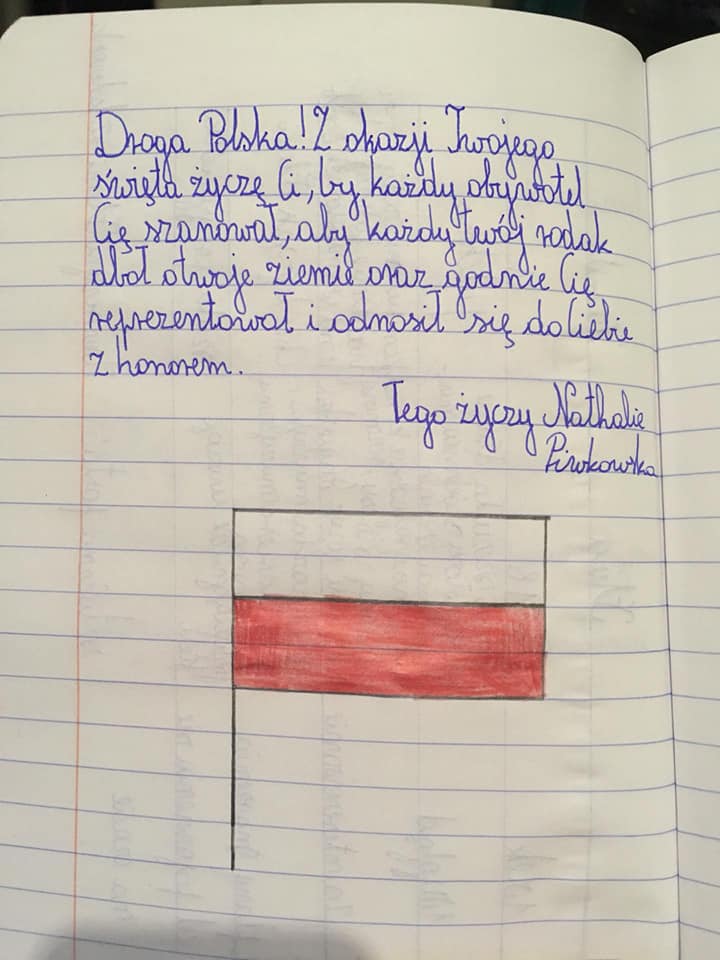 Droga Polska! Z okazji Twojego
święta życzę Ci, by każdy obywatel
Cię szanował, aby każdy twój rodak
dbał o twoje ziemie oraz godnie Cię
reprezentował i odnosił się do Ciebie
z honorem.
Tego życzy Nathalie
Piwkowska